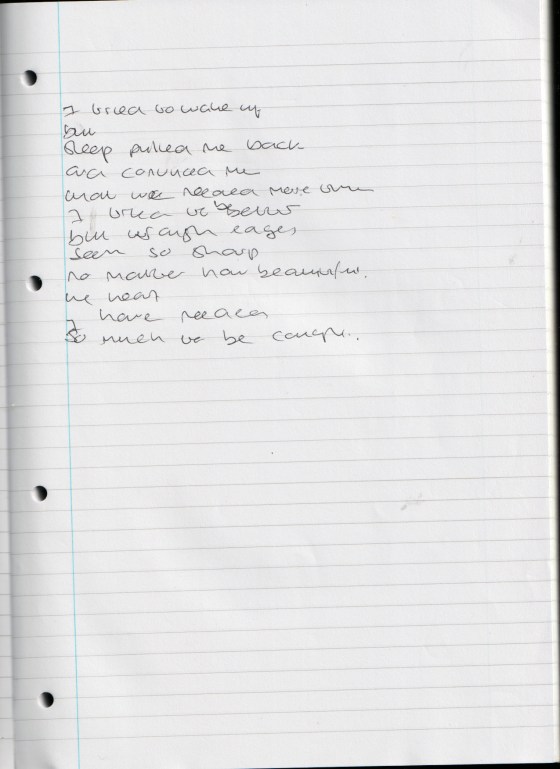 I tried to wake up
but
Sleep pulled me back
and convinced me
that we needed more time
I tried to be better
but rough edges
seem so sharp
no matter how beautiful.
the heart
I have needed
So much to be caught.